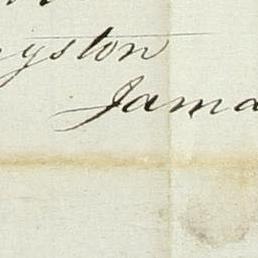 gyston
Jama